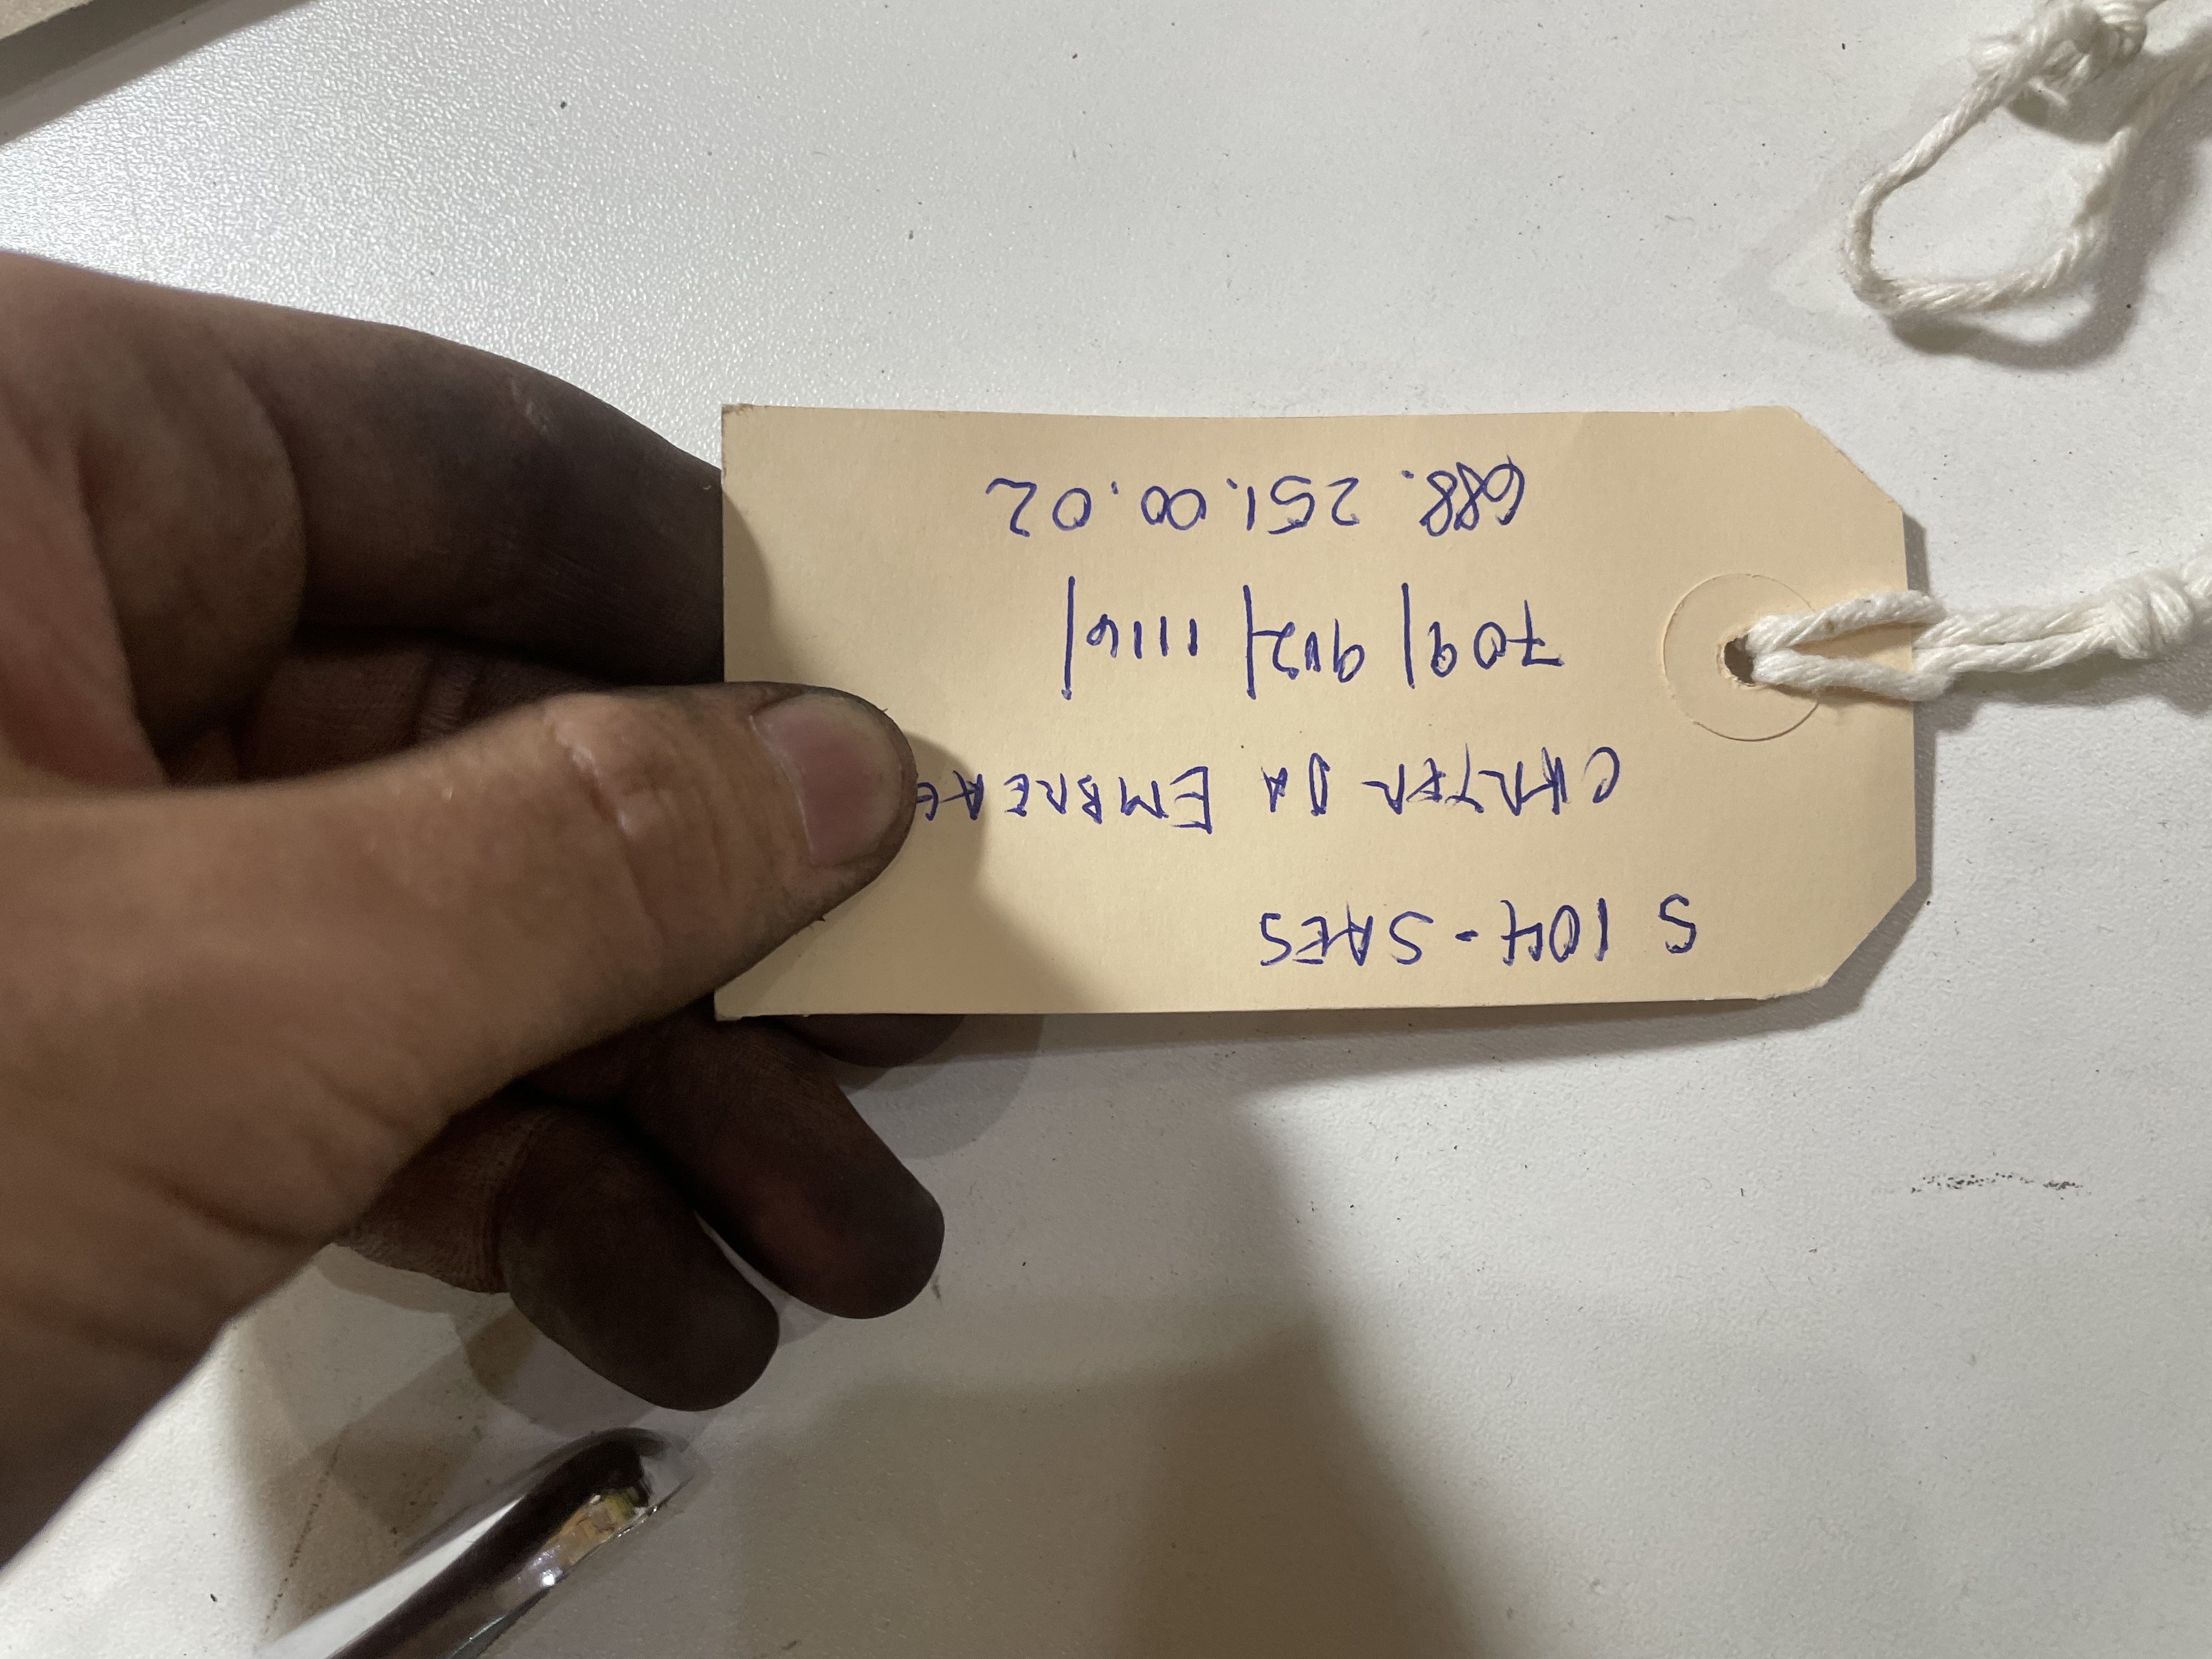 S 104 - SAES
CARTER DA EMBREAG
709/902/1116/
688.251.00.02